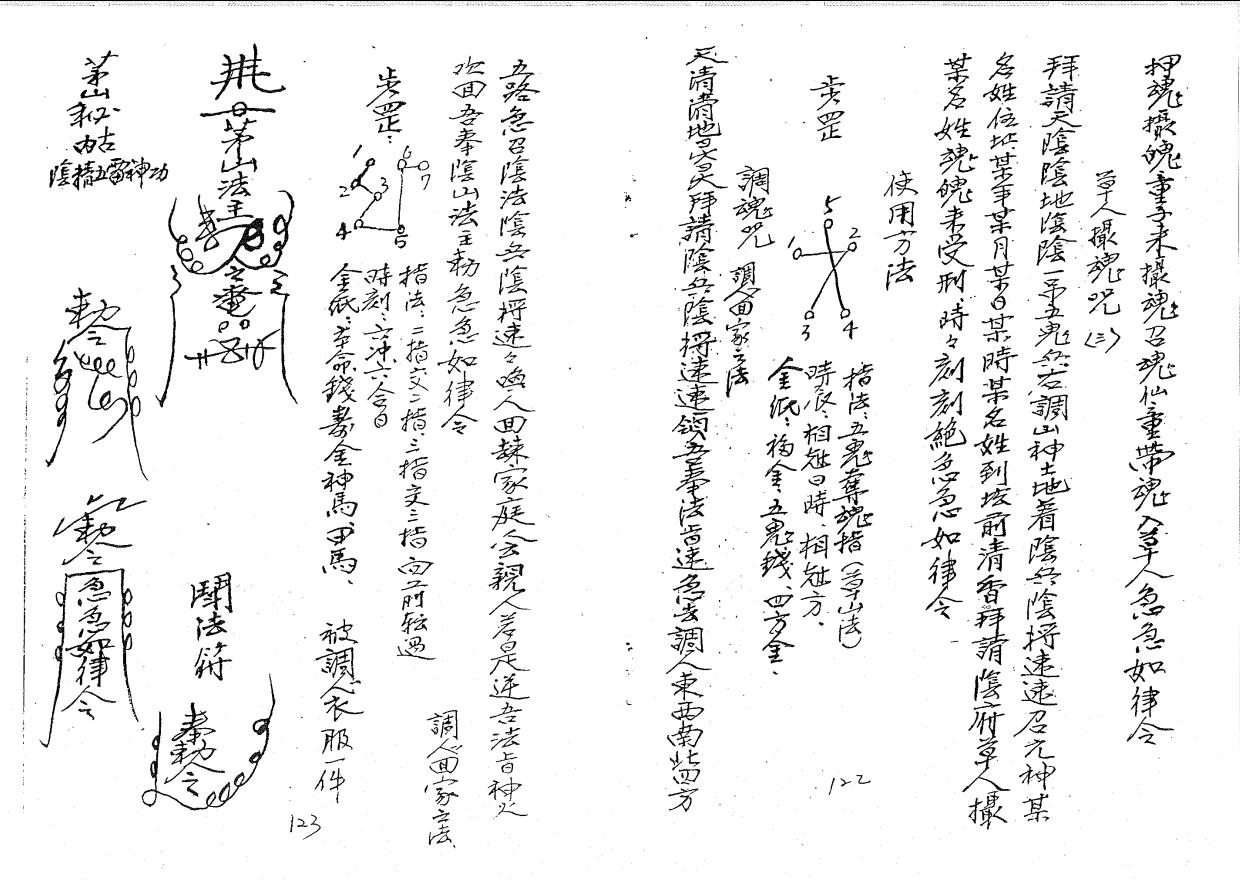 押魂攝魄童子来攝魂召魂仙童帶魂入草人急急如律令
草人攝魂咒(三)
拜請天陰陰地陰陰一吊五鬼兵召調山神土地着陰兵陰將速速召元神某
名姓位址某年某月某日某時某名姓到坛前清香拜請陰府草人攝
某名姓魂魄来受刑、時々刻刻絕急急如律令
使用方法
步罡
1
5
2
3
4
指法:五鬼奪魂指(草山法)
時辰:相冲日時、相冲方、
金紙:福金、五鬼錢、四方金、
調魂咒 調人回家之法
天清清地灵灵拜請陰兵陰將速速領吾奉法旨速急去調人東西南北四方
122
五路急召陰法陰兵陰將速々喚人回歸家庭会親人若是逆吾法旨神火
吹回吾奉陰山法主勅急急如律令
步罡:
1
2
3
4
5
6
7
指法:二指交二指、三指交三指向前転過
時刻:六冲六合日
金紙:本命錢壽金神馬甲馬、 被調人衣服一件
調人回家之法、
123
茅山法主
鬪法符
奉勅令
茅山秘內古
陰精五雷神功
勅令
勅令
急急如律令